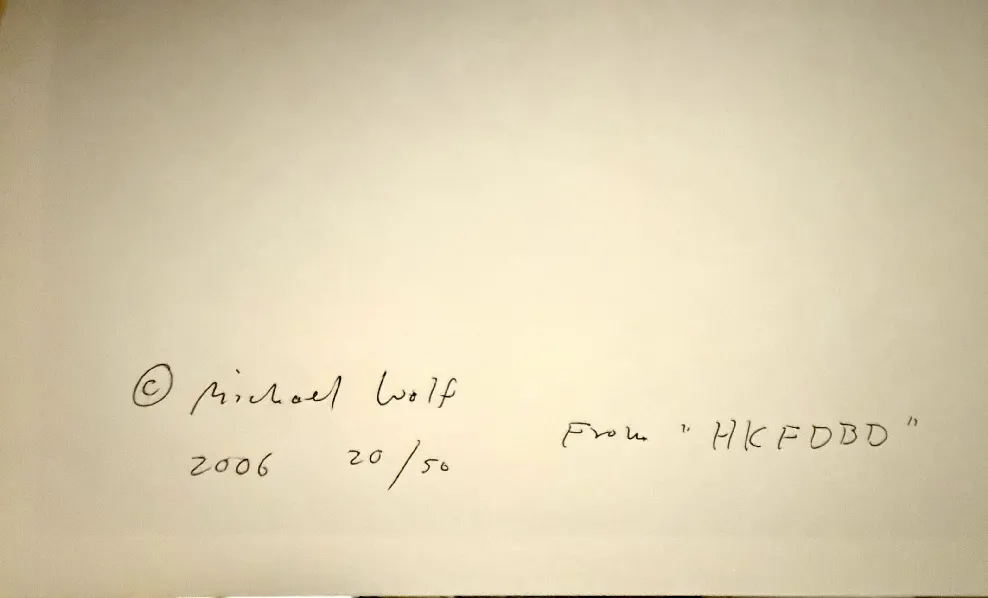 © Michael Wolf
2006 20/50
From "HKFDBD"